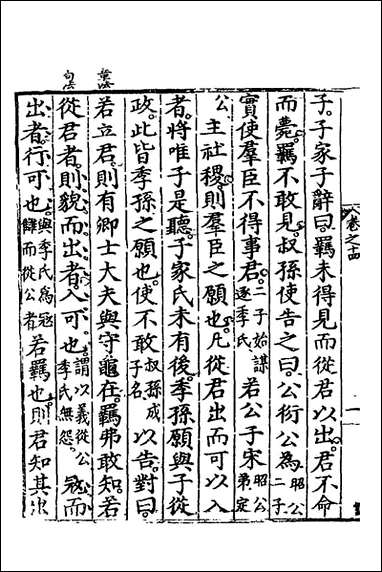 卷之十四
子。子家子辭曰。羈未得見而從君以出。君不命
而薨。羈不敢見。叔孫使告之曰。公衍公為昭公二子
實使羣臣不得事君。二子始謀逐季氏若公子宋昭公弟定
公主社稷。則羣臣之願也。凡從君出而可以入
者。將唯子是聽。子家氏未有後。季孫願與子從
政。此皆季孫之願也。使不敢叔孫成子名以告。對曰。
若立君。則有卿士大夫與守龜在。羈弗敢知。若
從君者。則貌而出者。入可也。謂以義從公季氏無怨。寇而
出者。行可也。與季氏為寇讎而從公者若羈也。則君知其出
章法
句法